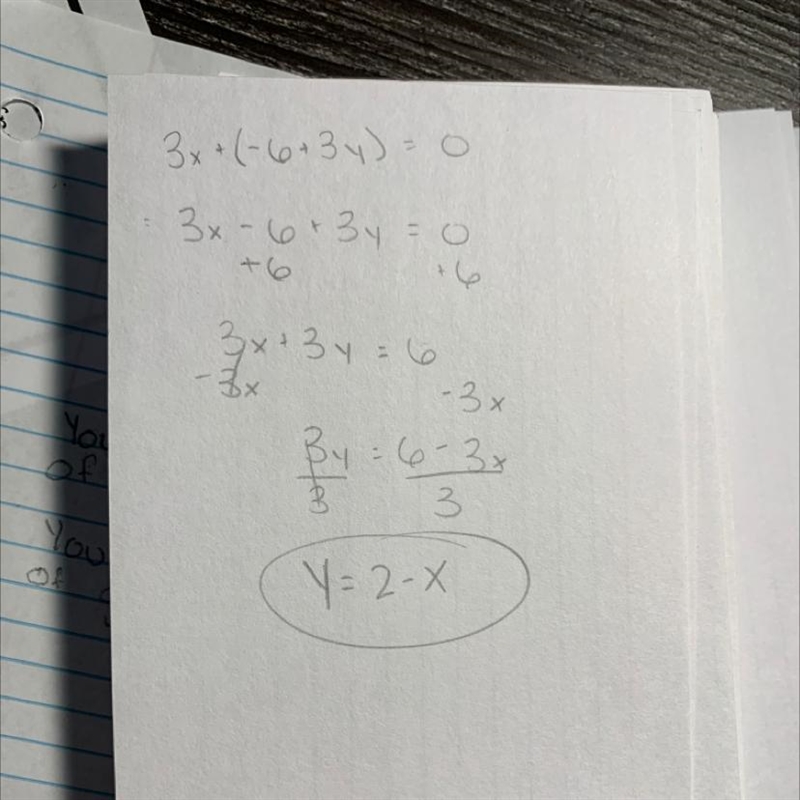 3x + (-6 + 3y) = 0
= 3x - 6 + 3y = 0
+6 +6
3x + 3y = 6
-3x -3x
3y = 6 - 3x
3 3
y = 2 - x
You
of
You
of